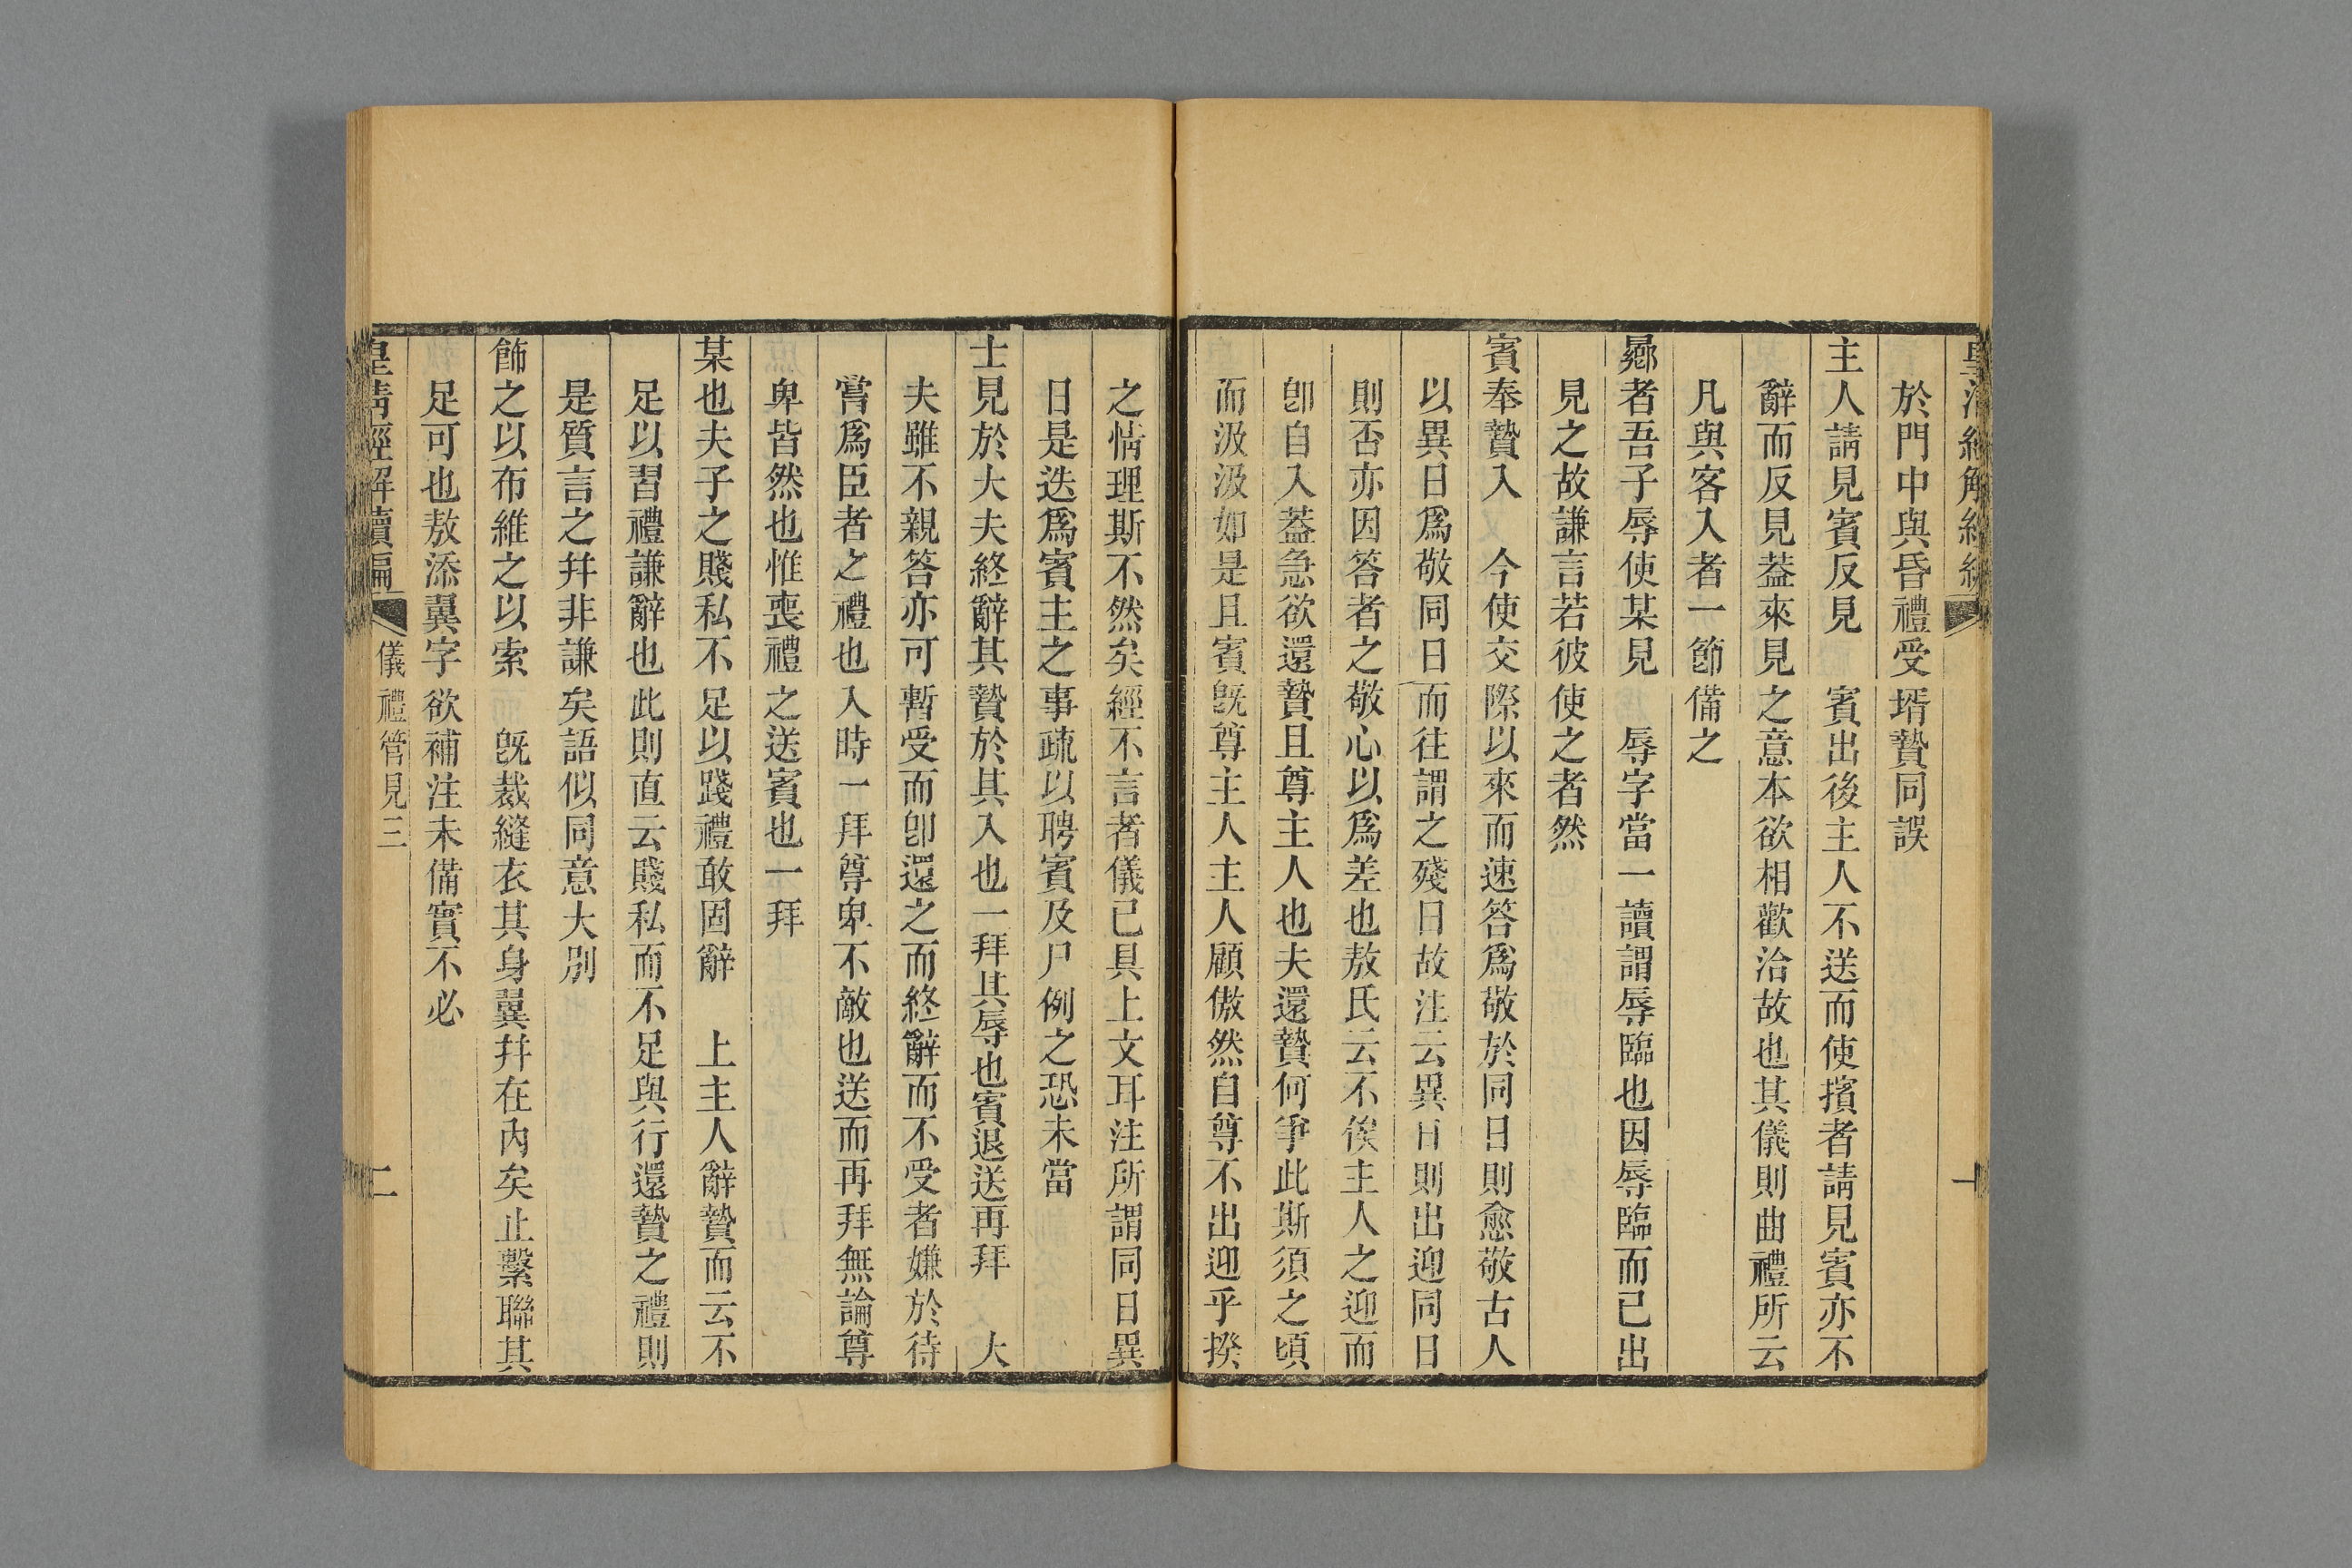 於門中與昏禮受壻贄同誤
主人請見賓反見　賓出後主人不送而使擯者請見賓亦不
辭而反見葢來見之意本欲相歡洽故也其儀則曲禮所云
凡與客入者一節備之
曏者吾子辱使某見　辱字當一讀謂辱臨也因辱臨而已出
見之故謙言若彼使之者然
賓奉贄入　今使交際以來而速答爲敬於同日則愈敬古人
以異日爲敬同日而往謂之殘日故注云異日則出迎同日
則否亦因答者之敬心以爲差也敖氏云不俟主人之迎而
卽自入葢急欲還贄且尊主人也夫還贄何爭此斯須之頃
而汲汲如是且賓旣尊主人主人顧傲然自尊不出迎乎揆
之情理斯不然矣經不言者儀已具上文耳注所謂同日異
日是迭爲賓主之事疏以聘賓及尸例之恐未當
士見於大夫終辭其贄於其入也一拜其辱也賓退送再拜　大
夫雖不親答亦可暫受而卽還之而終辭而不受者嫌於待
嘗爲臣者之禮也入時一拜尊卑不敵也送而再拜無論尊
卑皆然也惟喪禮之送賓也一拜
某也夫子之賤私不足以踐禮敢固辭　上主人辭贄而云不
足以習禮謙辭也此則直云賤私而不足與行還贄之禮則
是質言之幷非謙矣語似同意大別
飾之以布維之以索　旣裁縫衣其身翼幷在內矣止繫聯其
足可也敖添翼字欲補注未備實不必
皇清經解續編　儀禮管見三　二